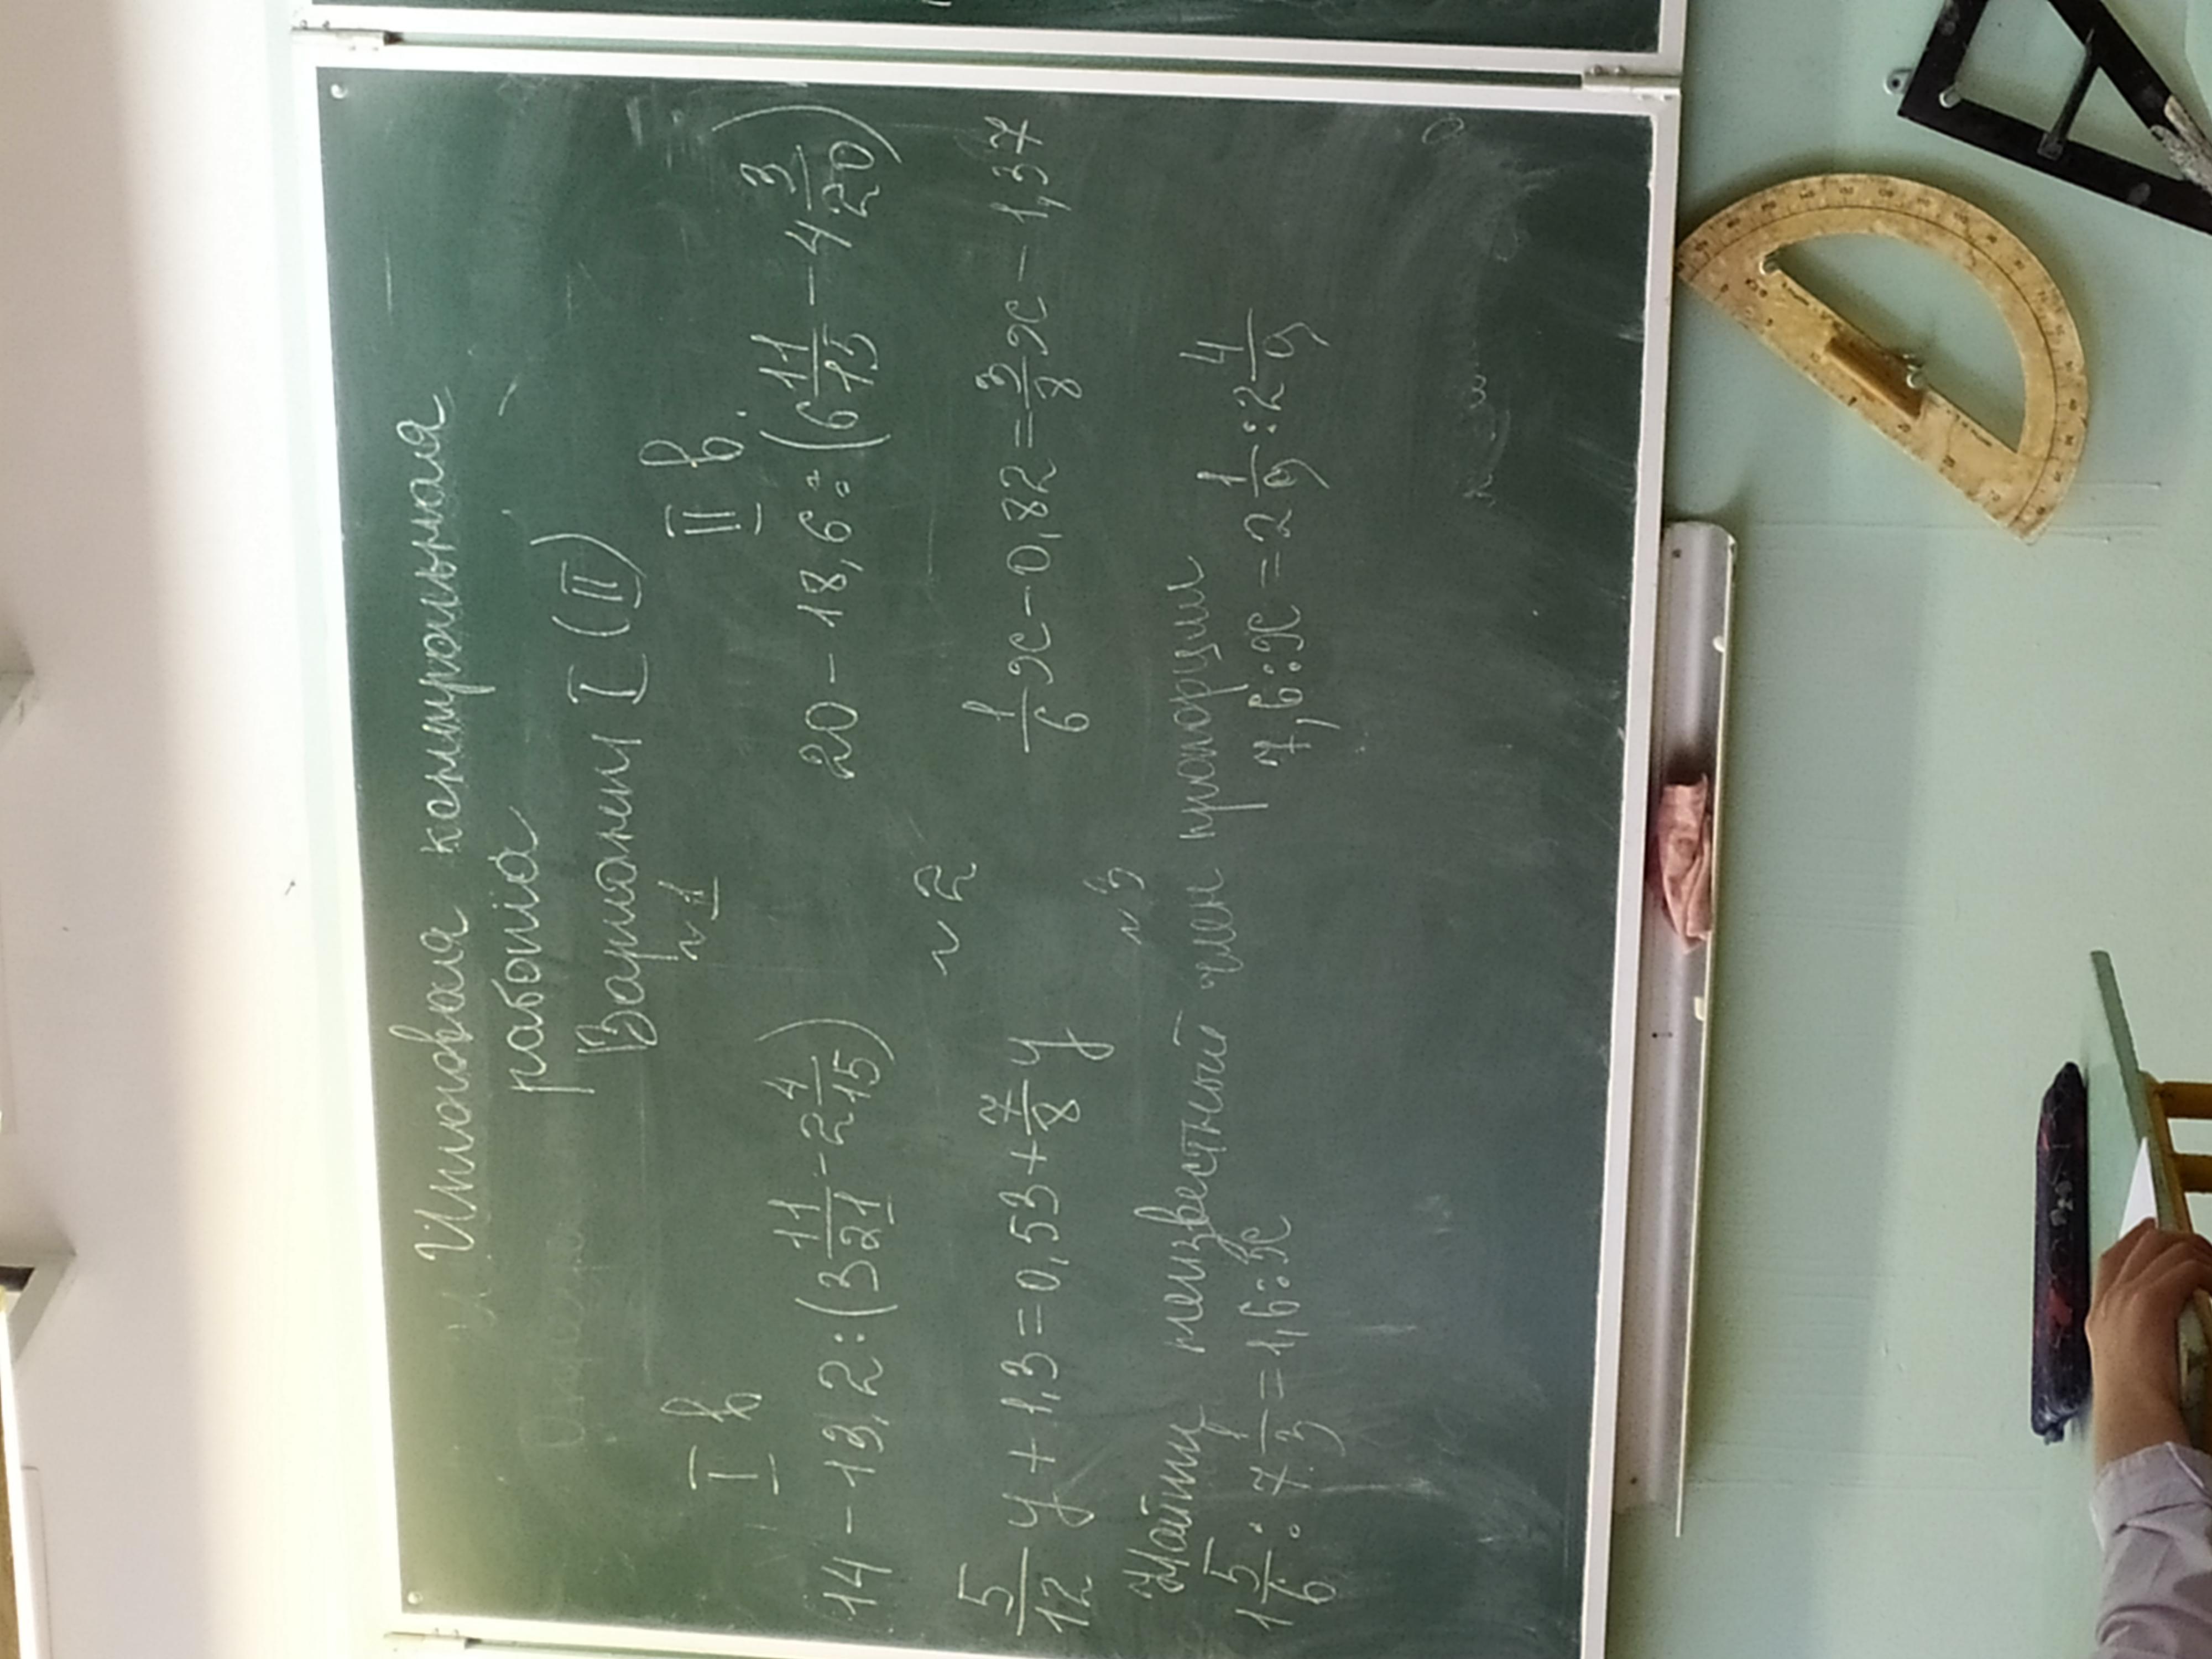 Итоговая контрольная
работа
Вариант I (II)
I в
n 1
II в.
14 - 13,2 : (3 11/21 - 2 4/15)
20 - 18,6 : (6 11/15 - 4 3/20)
n 2
5/12 y + 1,3 = 0,53 + 7/8 y
1/6 x - 0,82 = 3/8 x - 1,37
n 3
Найти неизвестный член пропорции
1 5/6 : 7.3 = 1,6 : x
7,6 : x = 2 1/9 : 2 4/9